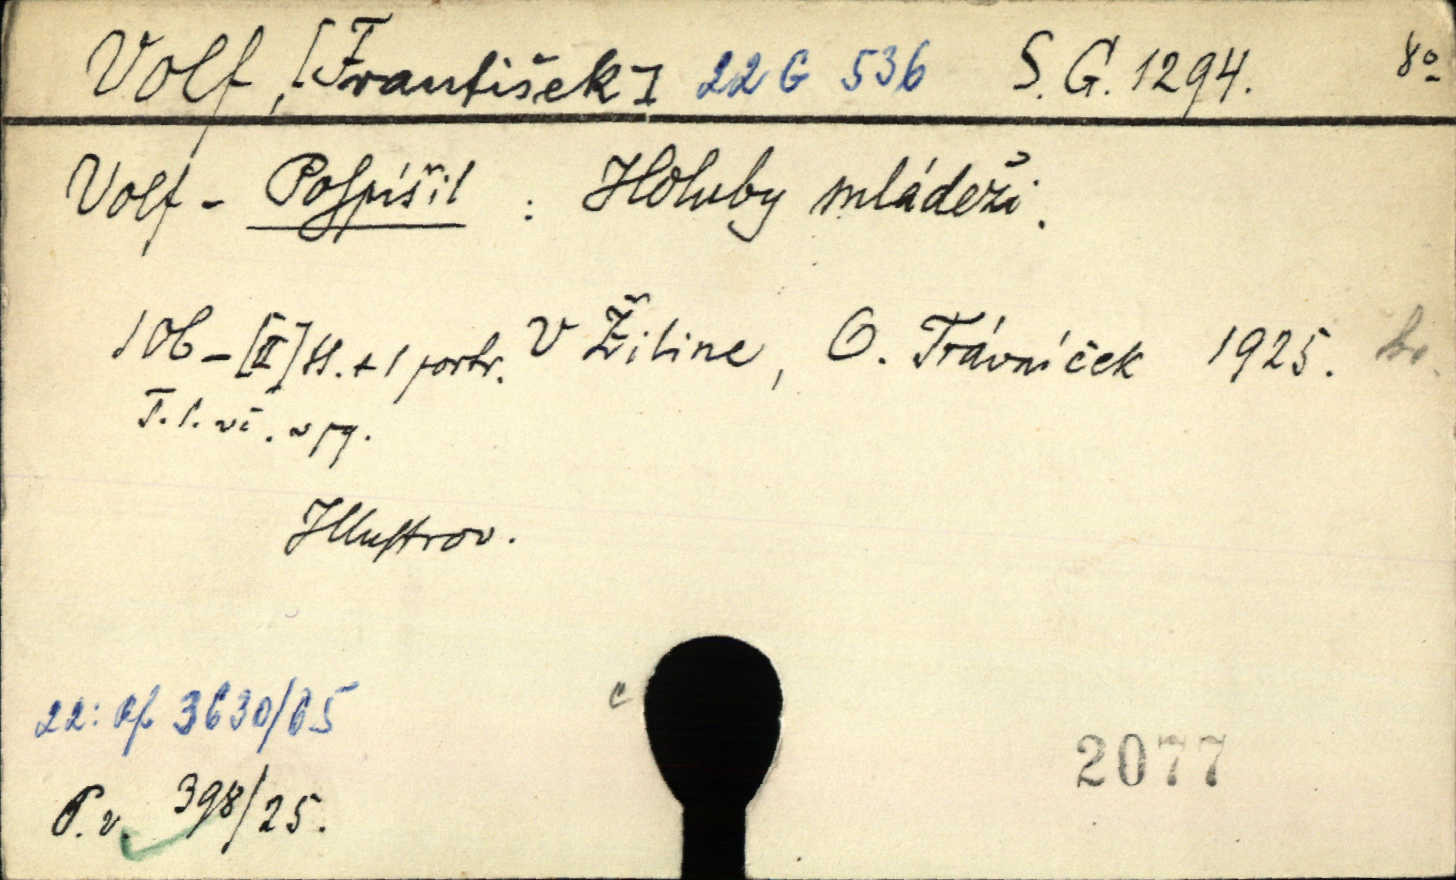 Volf, [František] 22 G 536 S. G. 1294. 8°
Volf - Pospíšil : Holuby mládeži.
106 - [II] ss. + 1 portr. V Žiline, O. Trávníček 1925.
T. l. vč. v pg.
Illustrov.
22: 3630/65
c
2077
P. v. 398/25.